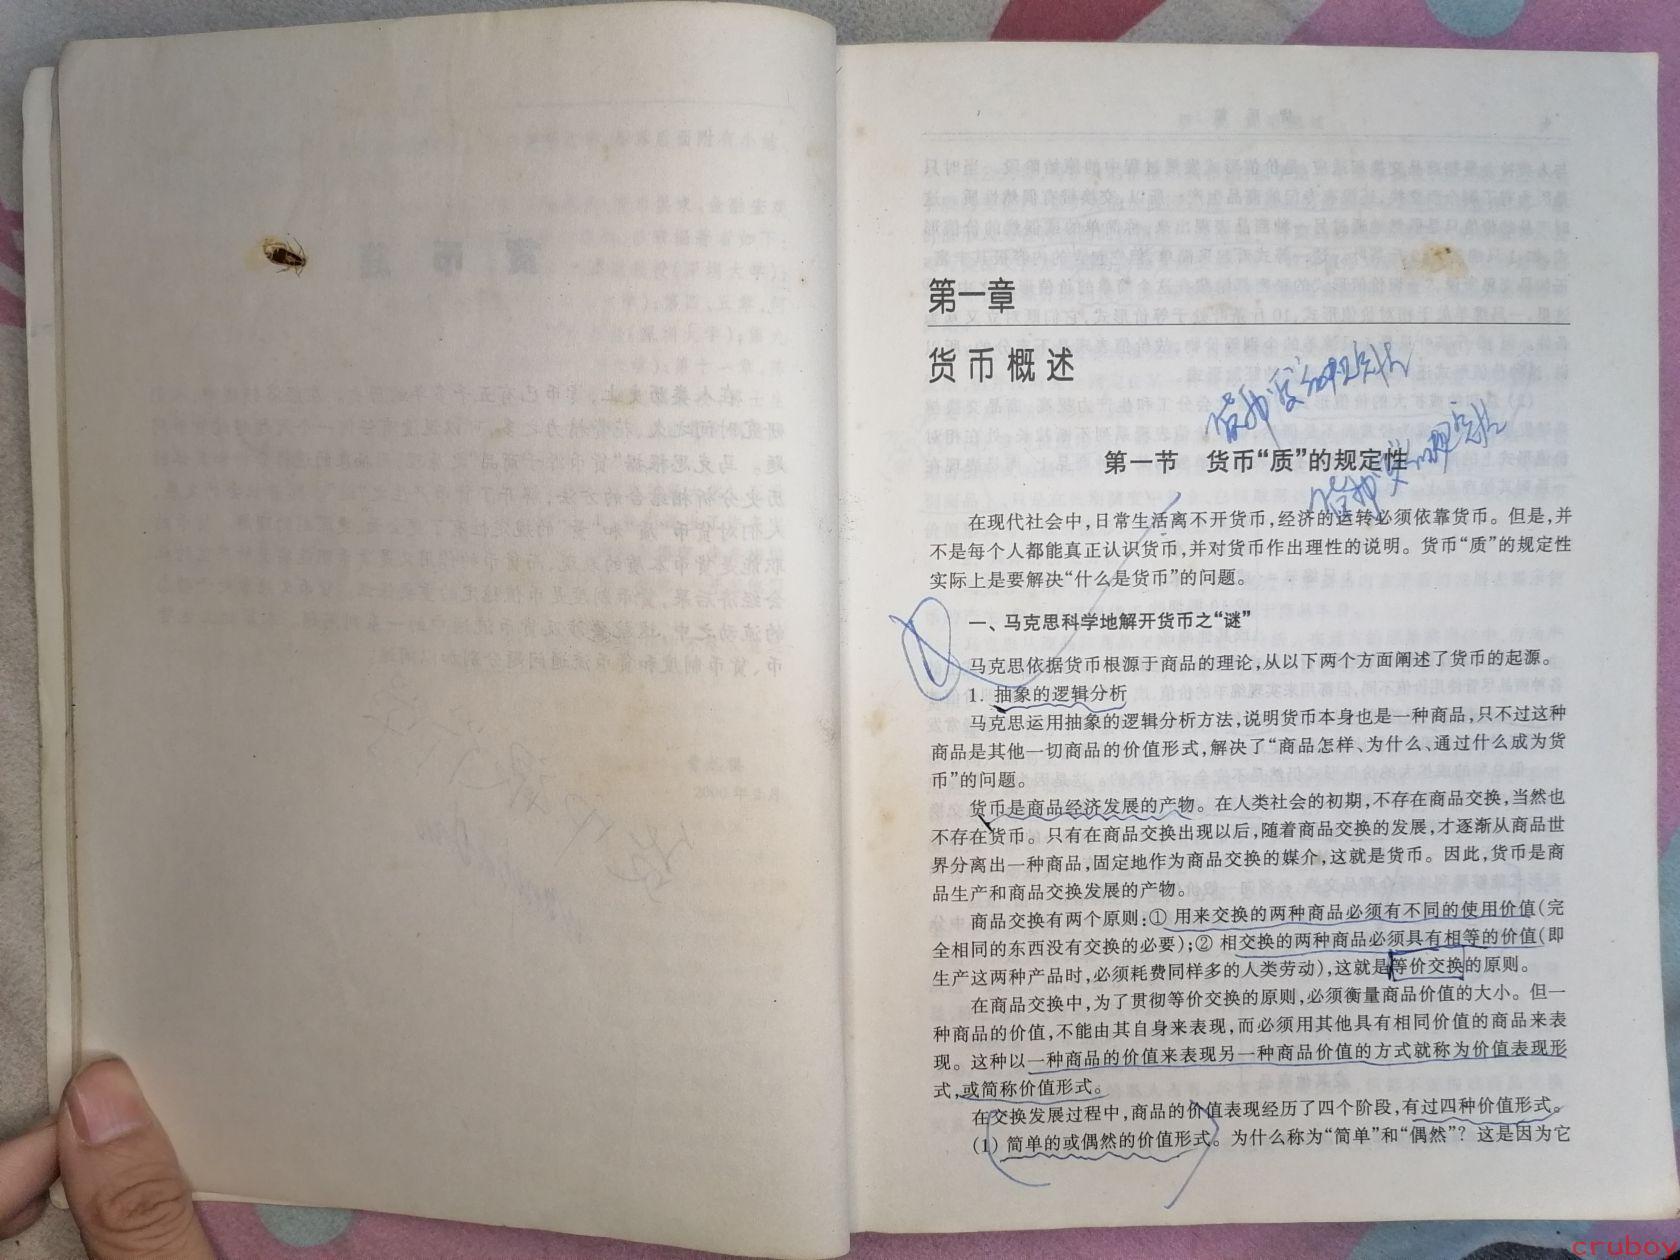 第一章
货币概述
第一节 货币“质”的规定性
在现代社会中,日常生活离不开货币,经济的运转必须依靠货币。但是,并
不是每个人都能真正认识货币,并对货币作出理性的说明。货币“质”的规定性
实际上是要解决“什么是货币”的问题。
一、马克思科学地解开货币之“谜”
马克思依据货币根源于商品的理论,从以下两个方面阐述了货币的起源。
1. 抽象的逻辑分析
马克思运用抽象的逻辑分析方法,说明货币本身也是一种商品,只不过这种
商品是其他一切商品的价值形式,解决了“商品怎样、为什么、通过什么成为货
币”的问题。
货币是商品经济发展的产物。在人类社会的初期,不存在商品交换,当然也
不存在货币。只有在商品交换出现以后,随着商品交换的发展,才逐渐从商品世
界分离出一种商品,固定地作为商品交换的媒介,这就是货币。因此,货币是商
品生产和商品交换发展的产物。
商品交换有两个原则:① 用来交换的两种商品必须有不同的使用价值(完
全相同的东西没有交换的必要);② 相交换的两种商品必须具有相等的价值(即
生产这两种产品时,必须耗费同样多的人类劳动),这就是等价交换的原则。
在商品交换中,为了贯彻等价交换的原则,必须衡量商品价值的大小。但一
种商品的价值,不能由其自身来表现,而必须用其他具有相同价值的商品来表
现。这种以一种商品的价值来表现另一种商品价值的方式就称为价值表现形
式,或简称价值形式。
在交换发展过程中,商品的价值表现经历了四个阶段,有过四种价值形式。
(1) 简单的或偶然的价值形式。为什么称为“简单”和“偶然”? 这是因为它
cruboy